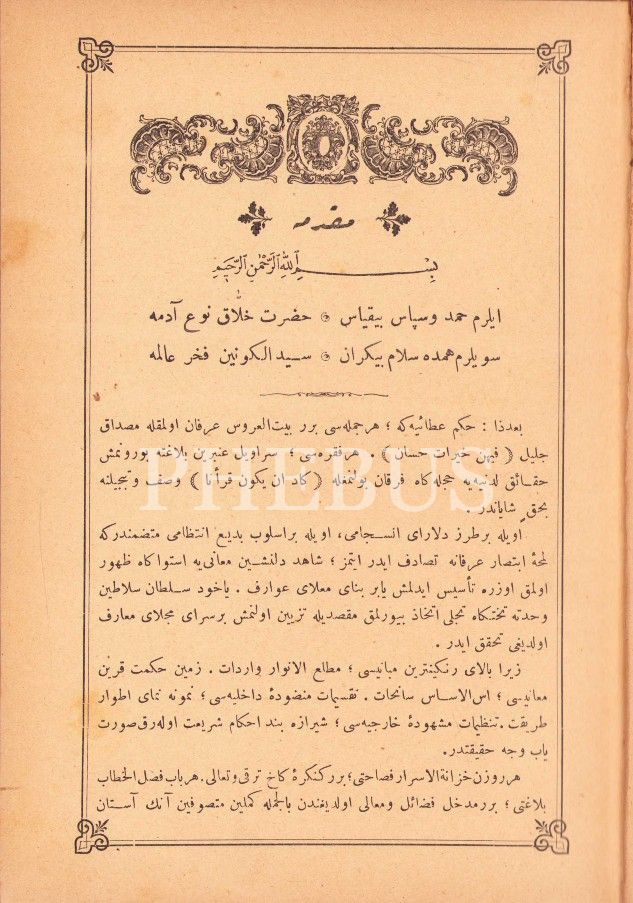 مقدمه
بسم الله الرحمن الرحيم
ايلرم حمد وسپاس بيقياس حضرت خلاق نوع آدمه
سويلرم همده سلام بيكران سيد الكونين فخر عالمه
بعدذا : حكم عطائيه كه ؛ هر جمله سى برر بيت العروس عرفان اولمقله مصداق
جليل ( فيهن خيرات حسان ) . هر فقره سى ؛ سراويل عنبرين بلاغته بورونمش
حقائق لدنيه يه حجله كاه فرقان بولنمغله ( كاد ان يكون قرأنا ) وصف و تبجيلنه
بحق شاياندر .
اويله بر طرز دلاراى انسجامى، اويله بر اسلوب بديع انتظامى متضمندركه
لمحۀ ابتصار عرفانه تصادف ايدر ايتمز ؛ شاهد دلنشين معانى يه استواكاه ظهور
اولمق اوزره تأسيس ايدلمش يا بر بناى معلاى عوارف . ياخود سلطان سلاطين
وحدته تختكاه تجلى اتخاذ بيورلمق مقصديله تزيين اولنمش بر سراى مجلاى معارف
اولديغى تحقق ايدر .
زيرا بالاى رنكينترين مبانيسى ؛ مطلع الانوار واردات . زمين حكمت قرين
معانيسى ؛ اس الاساس سانحات . تقسيمات منضودۀ داخليه سى ؛ نمونه نماى اطوار
طريقت . تنظيمات مشهودۀ خارجيه سى ؛ شيرازه بند احكام شريعت اوله رق صورت
ياب وجه حقيقتدر .
هر روزن خزانة الاسرار فصاحتى ؛ برر كنكرۀ كاخ ترقى وتعالى . هر باب فصل الخطاب
بلاغتى ؛ برر مدخل فضائل ومعالى اولديغندن بالجمله كملين متصوفين آنك آستان
PHEBUS